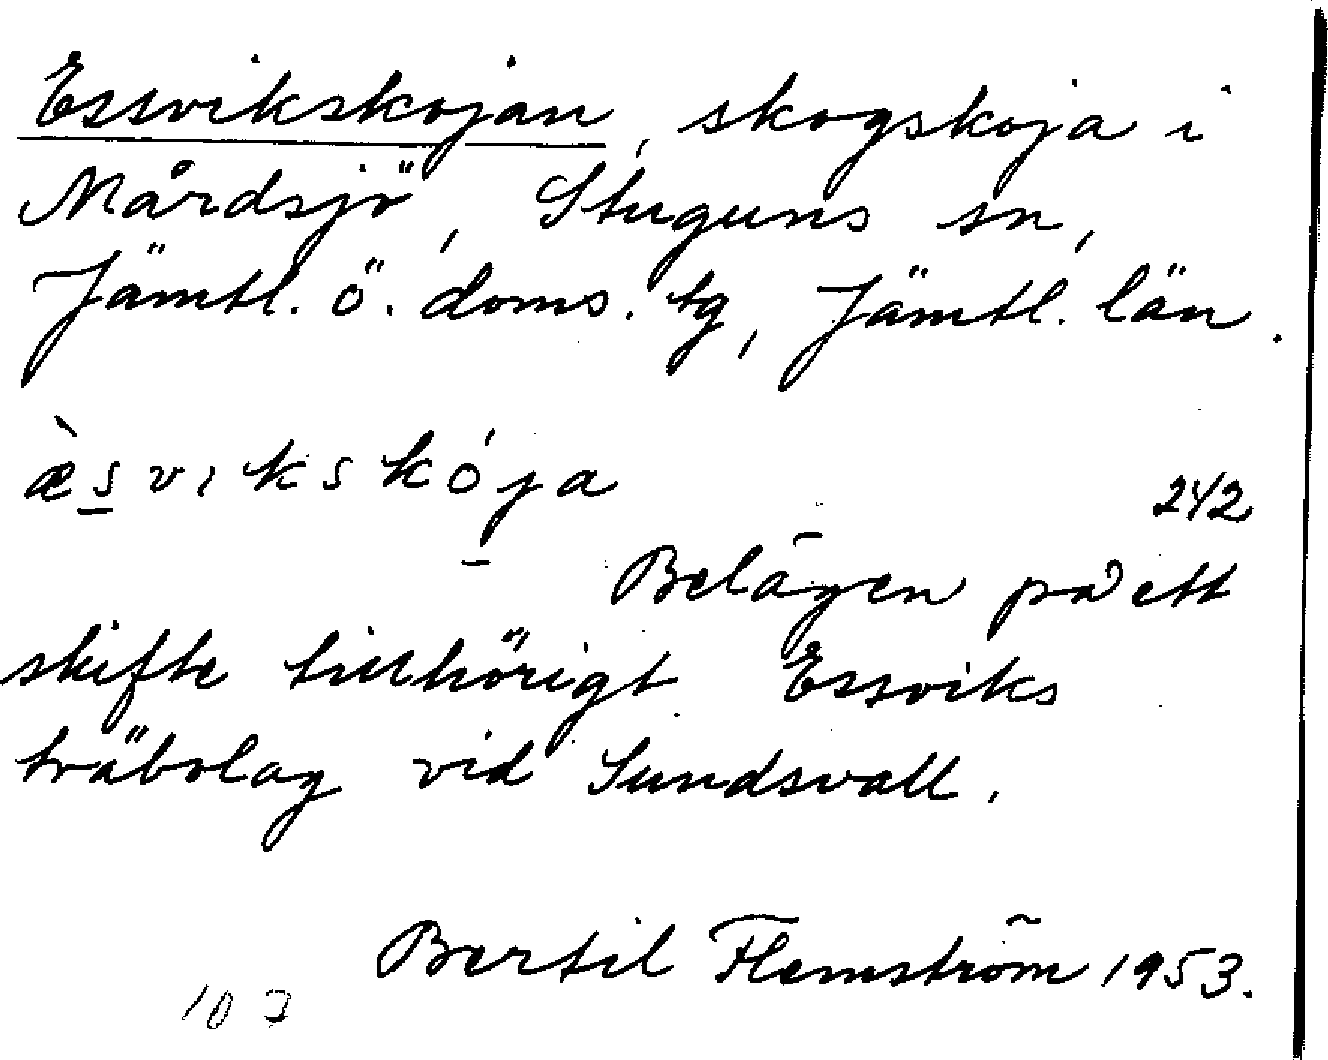 Essvikskojan, skogskoja i
Mårdsjö, Stuguns sn,
Jämtl. ö. doms. tg, Jämtl. län.
æ̀s̲vikskója
242
Belägen på ett
skifte tillhörigt Essviks
träbolag vid Sundsvall.
Bertil Flemström 1953.
103